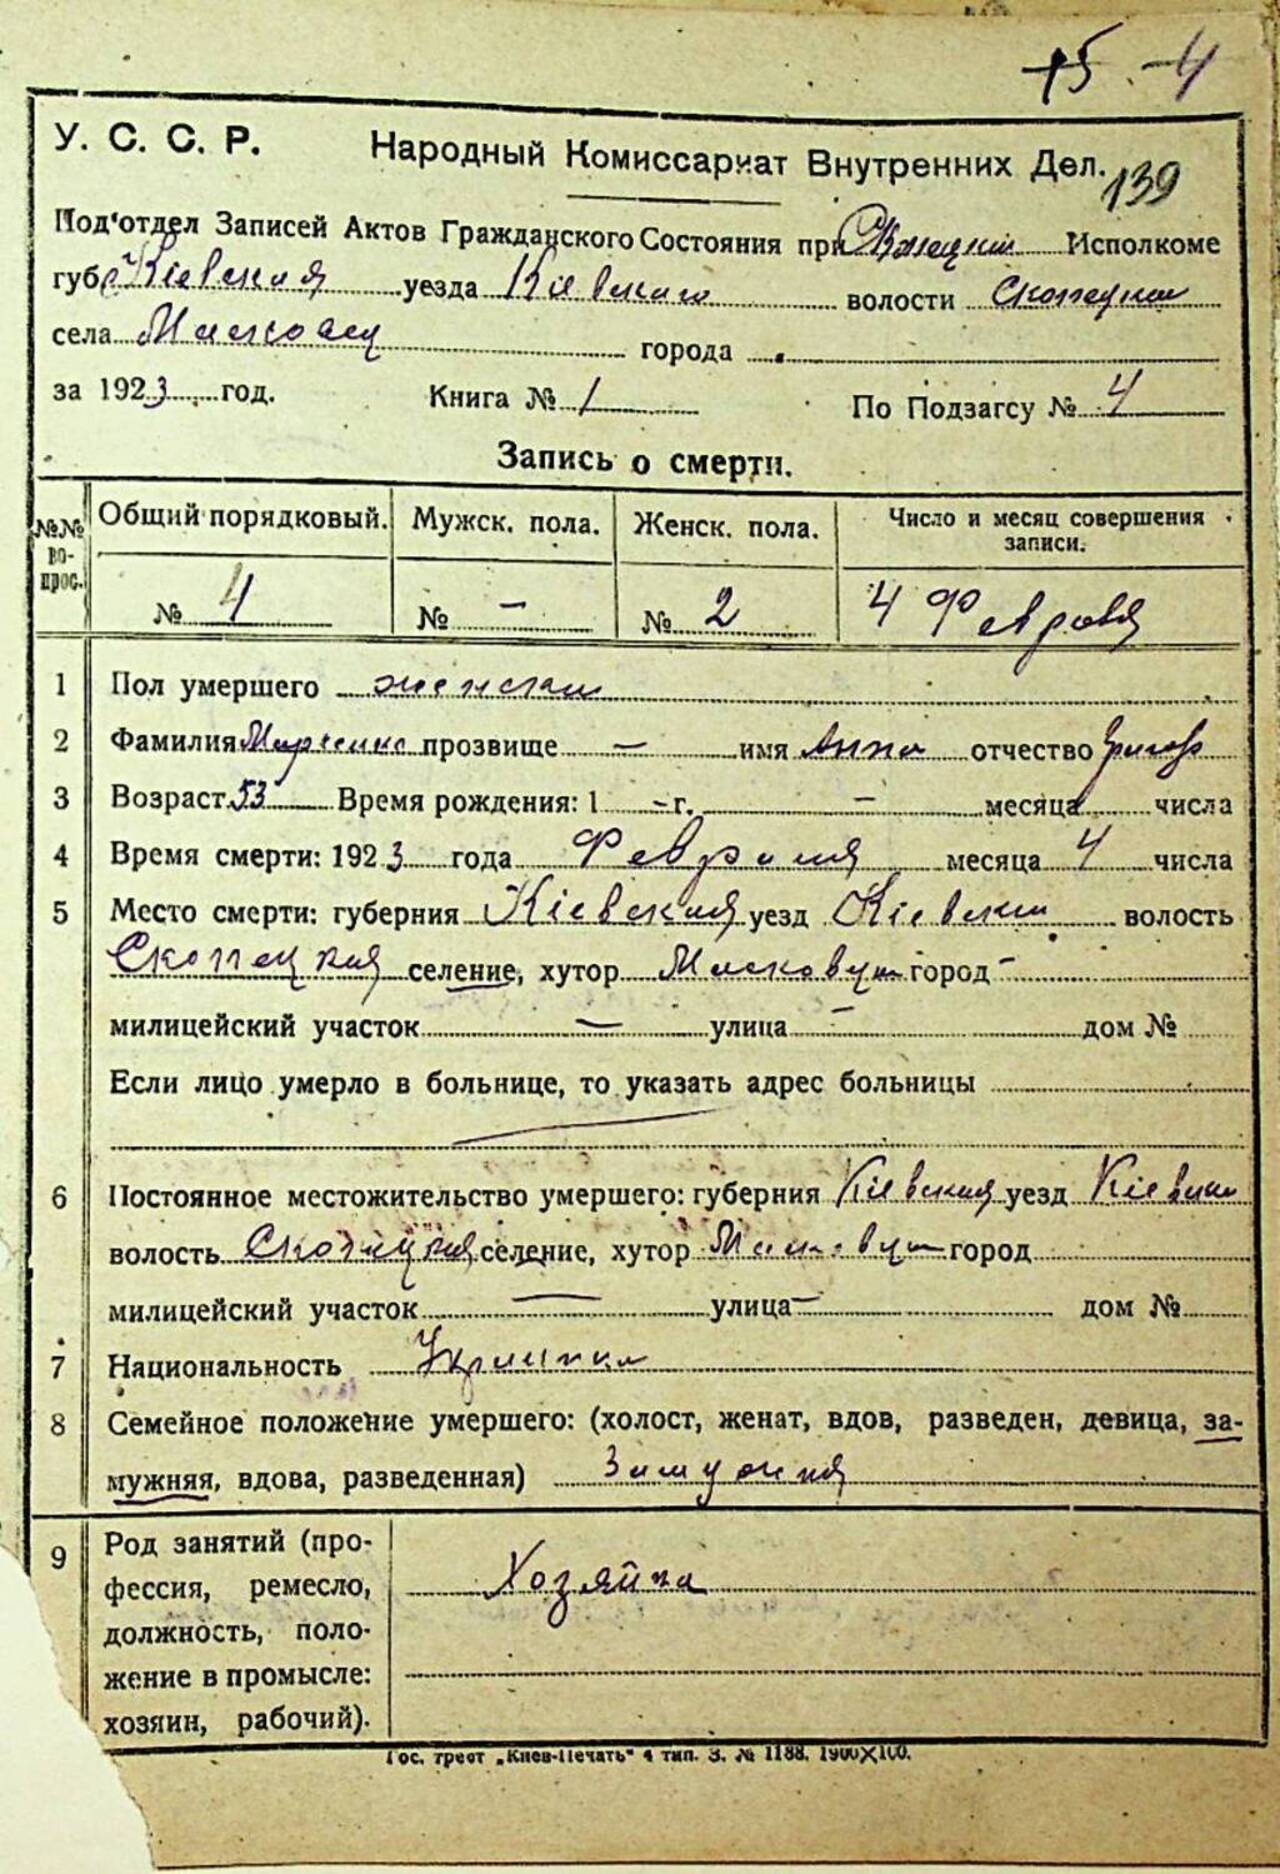 15 - 4
У. С. С. Р. Народный Комиссариат Внутренних Дел. 139
Под'отдел Записей Актов Гражданского Состояния при Исполкоме
губ. Кіевская уезда Кіевского волости
села города
за 1923 год. Книга № 1 По Подзагсу № 4
Запись о смерти.
№№ во-прос. Общий порядковый. Мужск. пола. Женск. пола. Число и месяц совершения записи.
№ 4 № – № 2 4 Февраля
1 Пол умершего женская
2 Фамилия прозвище – имя Анна отчество Григор
3 Возраст 53 Время рождения: 1 - г. – месяца числа
4 Время смерти: 1923 года Февраля месяца 4 числа
5 Место смерти: губерния Кіевская уезд Кіевский волость
Скопецкая селение, хутор город -
милицейский участок – улица – дом №
Если лицо умерло в больнице, то указать адрес больницы
6 Постоянное местожительство умершего: губерния Кіевская уезд Кіевский
волость Скопецкая селение, хутор город
милицейский участок — улица – дом №
7 Национальность Украинка
8 Семейное положение умершего: (холост, женат, вдов, разведен, девица, за-
мужняя, вдова, разведенная) Замужняя
9 Род занятий (про-
фессия, ремесло, Хозяйка
должность, поло-
жение в промысле:
хозяин, рабочий).
Гос. трест „Киев-Печать" 4 тип. З. № 1188. 1900×100.